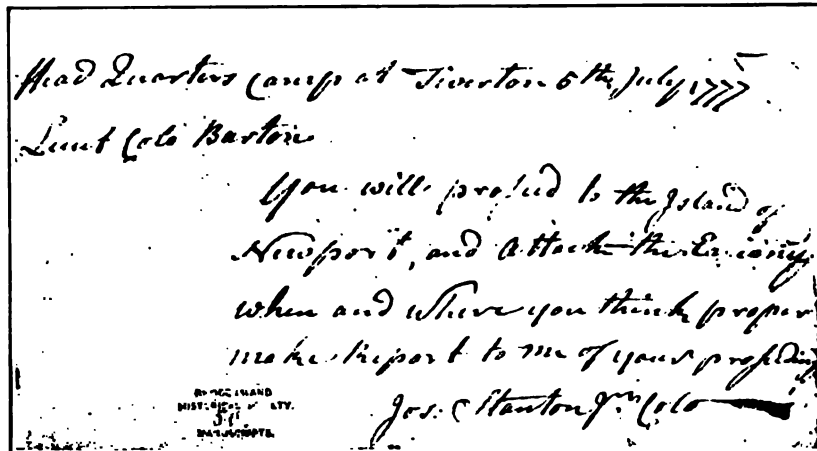 Head Quarters Camp at Tiverton 5th July 1777
Lieut Colo Barton
You will prosied to the Island of
Newport, and Attack the Enemy
when and where you think proper
make Report to me of your prosiedings
Jos. Stanton Jun Colo
RHODE ISLAND
HISTORICAL SOCIETY.
MANUSCRIPTS.